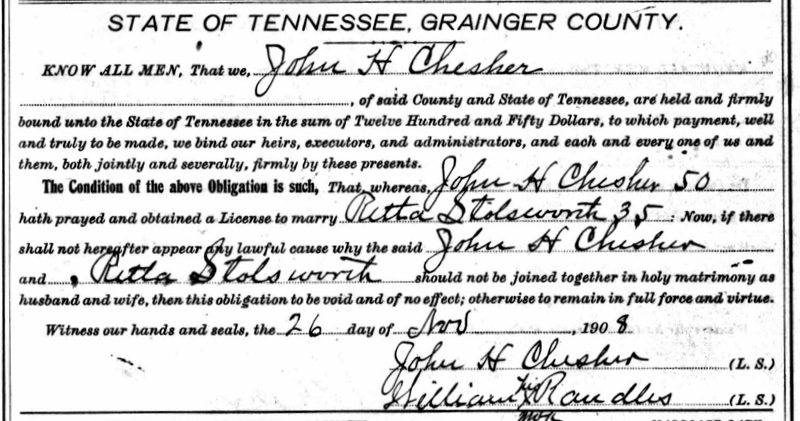 STATE OF TENNESSEE, GRAINGER COUNTY.
KNOW ALL MEN, That we, John H Chesher
, of said County and State of Tennessee, are held and firmly
bound unto the State of Tennessee in the sum of Twelve Hundred and Fifty Dollars, to which payment, well
and truly to be made, we bind our heirs, executors, and administrators, and each and every one of us and
them, both jointly and severally, firmly by these presents.
The Condition of the above Obligation is such, That whereas, John H Chesher 50
hath prayed and obtained a License to marry Retta Stolsworth 35. Now, if there
shall not hereafter appear any lawful cause why the said John H Chesher
and Retta Stolsworth should not be joined together in holy matrimony as
husband and wife, then this obligation to be void and of no effect; otherwise to remain in full force and virtue.
Witness our hands and seals, the 26 day of Nov, 1908
John H Chesher (L. S.)
William his Randles (L. S.)